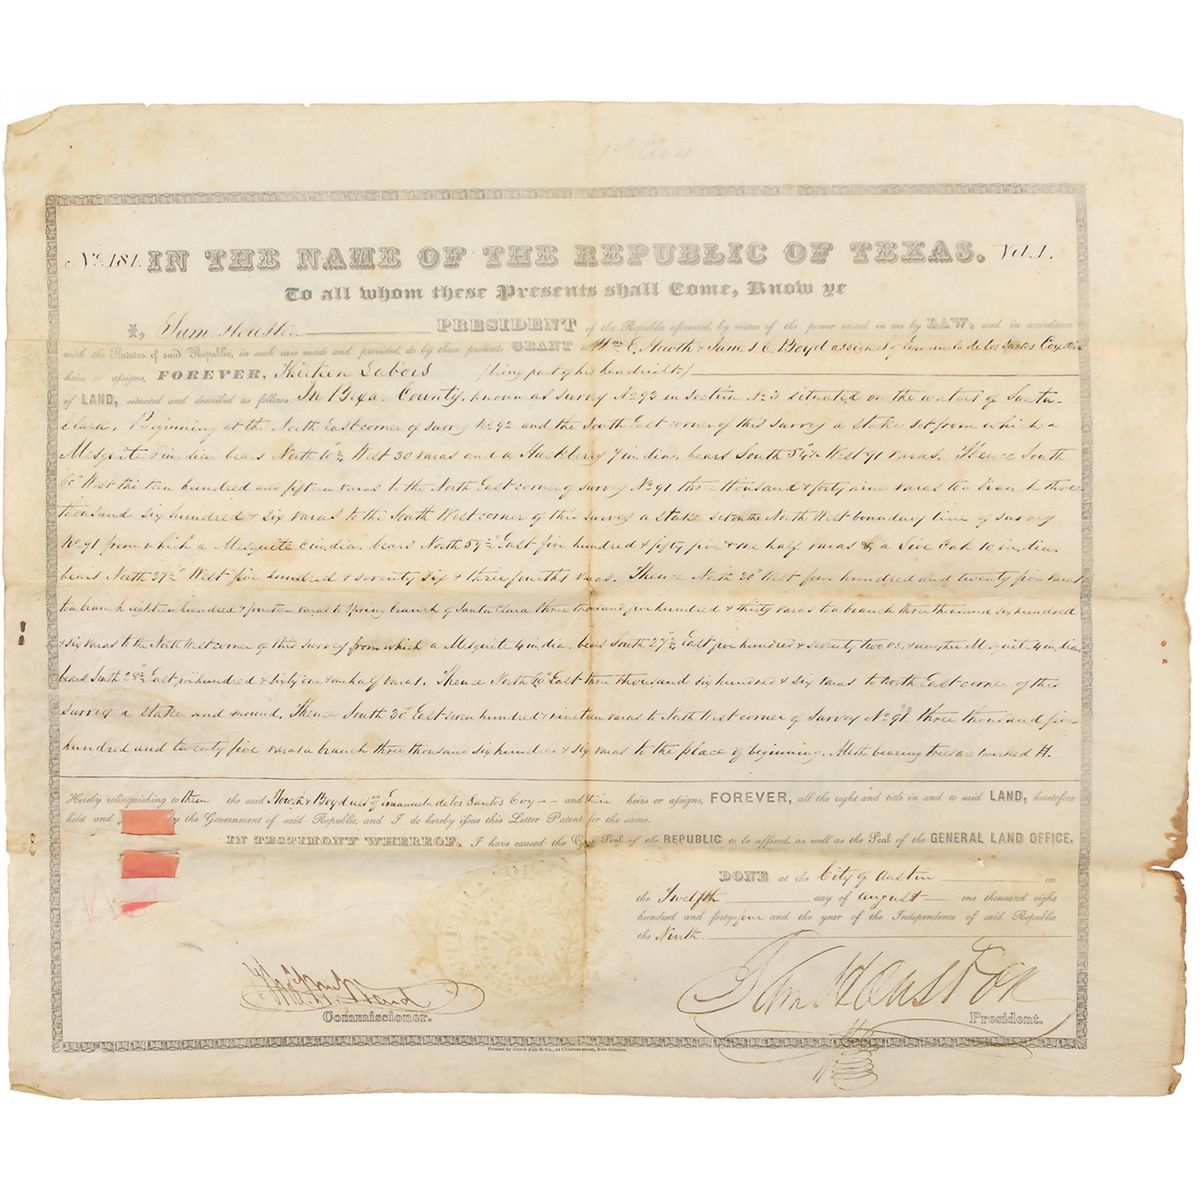 1st Class
No. 181. IN THE NAME OF THE REPUBLIC OF TEXAS. Vol. 1.
To all whom these Presents shall Come, Know ye
I, Sam Houston PRESIDENT of the Republic aforesaid, by virtue of the power vested in me by LAW, and in accordance
with the Statutes of said Republic, in such case made and provided, do by these presents GRANT to Wm. E. Howth & James C. Boyd assignees of Emanuela de los Santos Coy their
heirs or assigns, FOREVER, Thirteen Labors (being part of his headright)
of LAND, situated and described as follows: In Bexar County, known as survey No 93 in section No 3 situated on the waters of Santa
Clara. Beginning at the North East corner of survey No 92 and the South East corner of this survey a stake set from which a
Mesquite 8 in dia. bears North 10½° West 30 varas and a Hackberry 7 in dia. bears South 54½° West 41 varas. Thence South
60° West thirteen hundred and fifteen varas to the North East corner of survey No 91 three thousand & forty nine varas to a branch three
thousand six hundred & six varas to the South West corner of this survey a stake set on the North West boundary line of survey
No 91 from which a Mesquite 6 in dia. bears North 59½° East five hundred & fifty five & one half varas & a Live Oak 10 in dia.
bears North 27½° West five hundred & seventy six & three fourths varas. Thence North 30° West four hundred and twenty five varas
to a branch eighteen hundred & fourteen varas to Spring branch of Santa Clara three thousand five hundred & thirty varas to a branch three thousand six hundred
& six varas to the North West corner of this survey from which a Mesquite 4 in dia. bears South 27½° East five hundred & seventy two vs. & another Mesquite 4 in dia.
bears South 28½° East five hundred & sixty one & one half varas. Thence North 60° East three thousand six hundred & six varas to North East corner of this
survey a stake and mound. Thence South 30° East seven hundred & nineteen varas to North West corner of Survey No 98 three thousand five
hundred and twenty five varas to a branch three thousand six hundred & six varas to the place of beginning. All the bearing trees are marked H.
Hereby relinquishing to them the said Howth & Boyd ass. of Emanuela de los Santos Coy and their heirs or assigns, FOREVER, all the right and title in and to said LAND, heretofore
held and by the Government of said Republic, and I do hereby issue this Letter Patent for the same.
IN TESTIMONY WHEREOF, I have caused the Seal of the REPUBLIC to be affixed, as well as the Seal of the GENERAL LAND OFFICE.
DONE at the City of Austin on
the Twelfth day of August one thousand eight
hundred and forty four and the year of the Independence of said Republic
the Ninth.
Sam Houston
Commissioner. President.
Printed by David Felt & Co., Chartres-street, New Orleans.